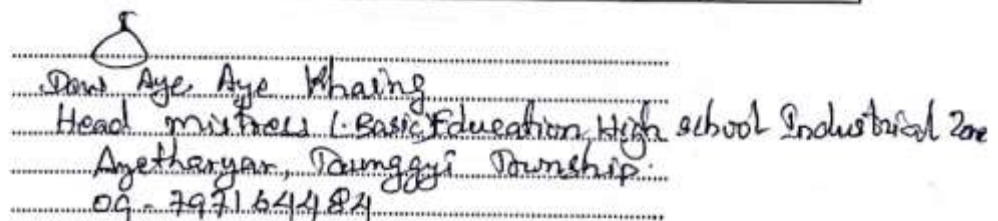 Daw Aye Aye Khaing
Head mistress (. Basic Education High school Industrial Zone
Ayetharyar, Taunggyi Township.
09-797164484